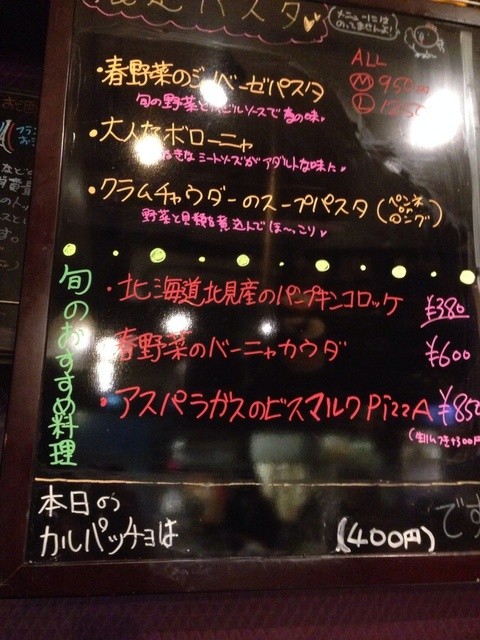 パスタ
メニューには
のってませんよ!
ALL
Ⓜ 950円
Ⓛ
・春野菜のジェノベーゼパスタ
旬の野菜とバジルソースで春の味♥
・大人なボローニャ
ミートソースがアダルトな味た♥
・クラムチャウダーのスープパスタ(ペンネorロング)
野菜と貝類を煮込んでほ〜っこり♥
旬のおすすめ料理
・北海道北見産のパンプキンコロッケ ¥380
・春野菜のバーニャカウダ ¥600
・アスパラガスのビスマルクPizzA ¥850
本日の
カルパッチョは (400円) です